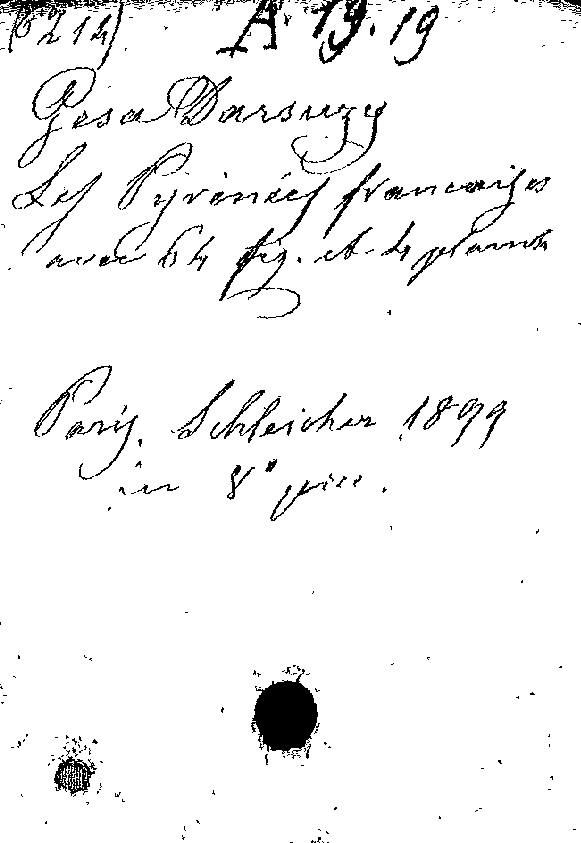 (6214) A. 19. 19
Gesa Darsuzy
Les Pyrénées francaises
avec 64 fig. et 4 plans
Paris, Schleicher 1899
in 8°